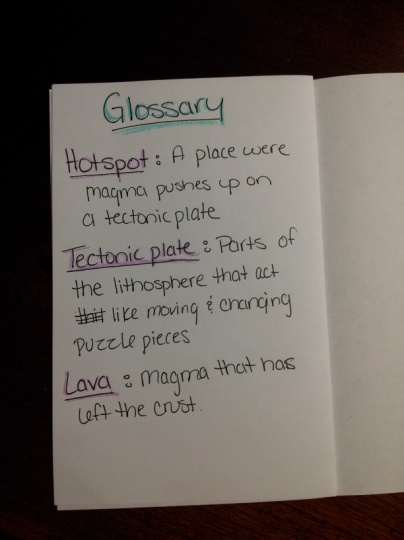 Glossary
Hotspot : A place were
magma pushes up on
a tectonic plate
Tectonic plate : Parts of
the lithosphere that act
like moving & changing
puzzle pieces
Lava : Magma that has
left the crust.